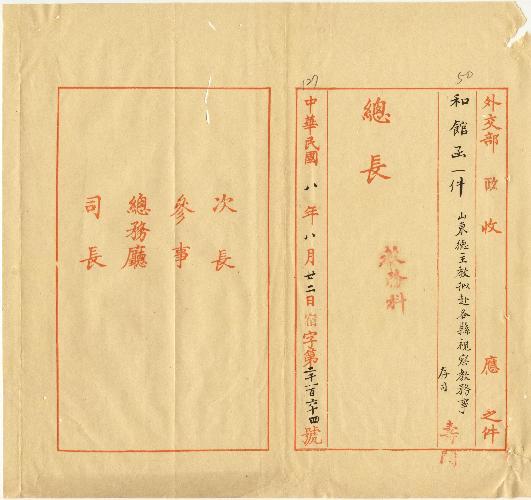 50
127
外交部 政收 應 之件
和館函一件 山東德主教拟赴各縣視察教務事
存司
壽門
總長
教務科
中華民國八年八月廿二日宿字第二千一百六十四號
次長
參事
總務廳
司長